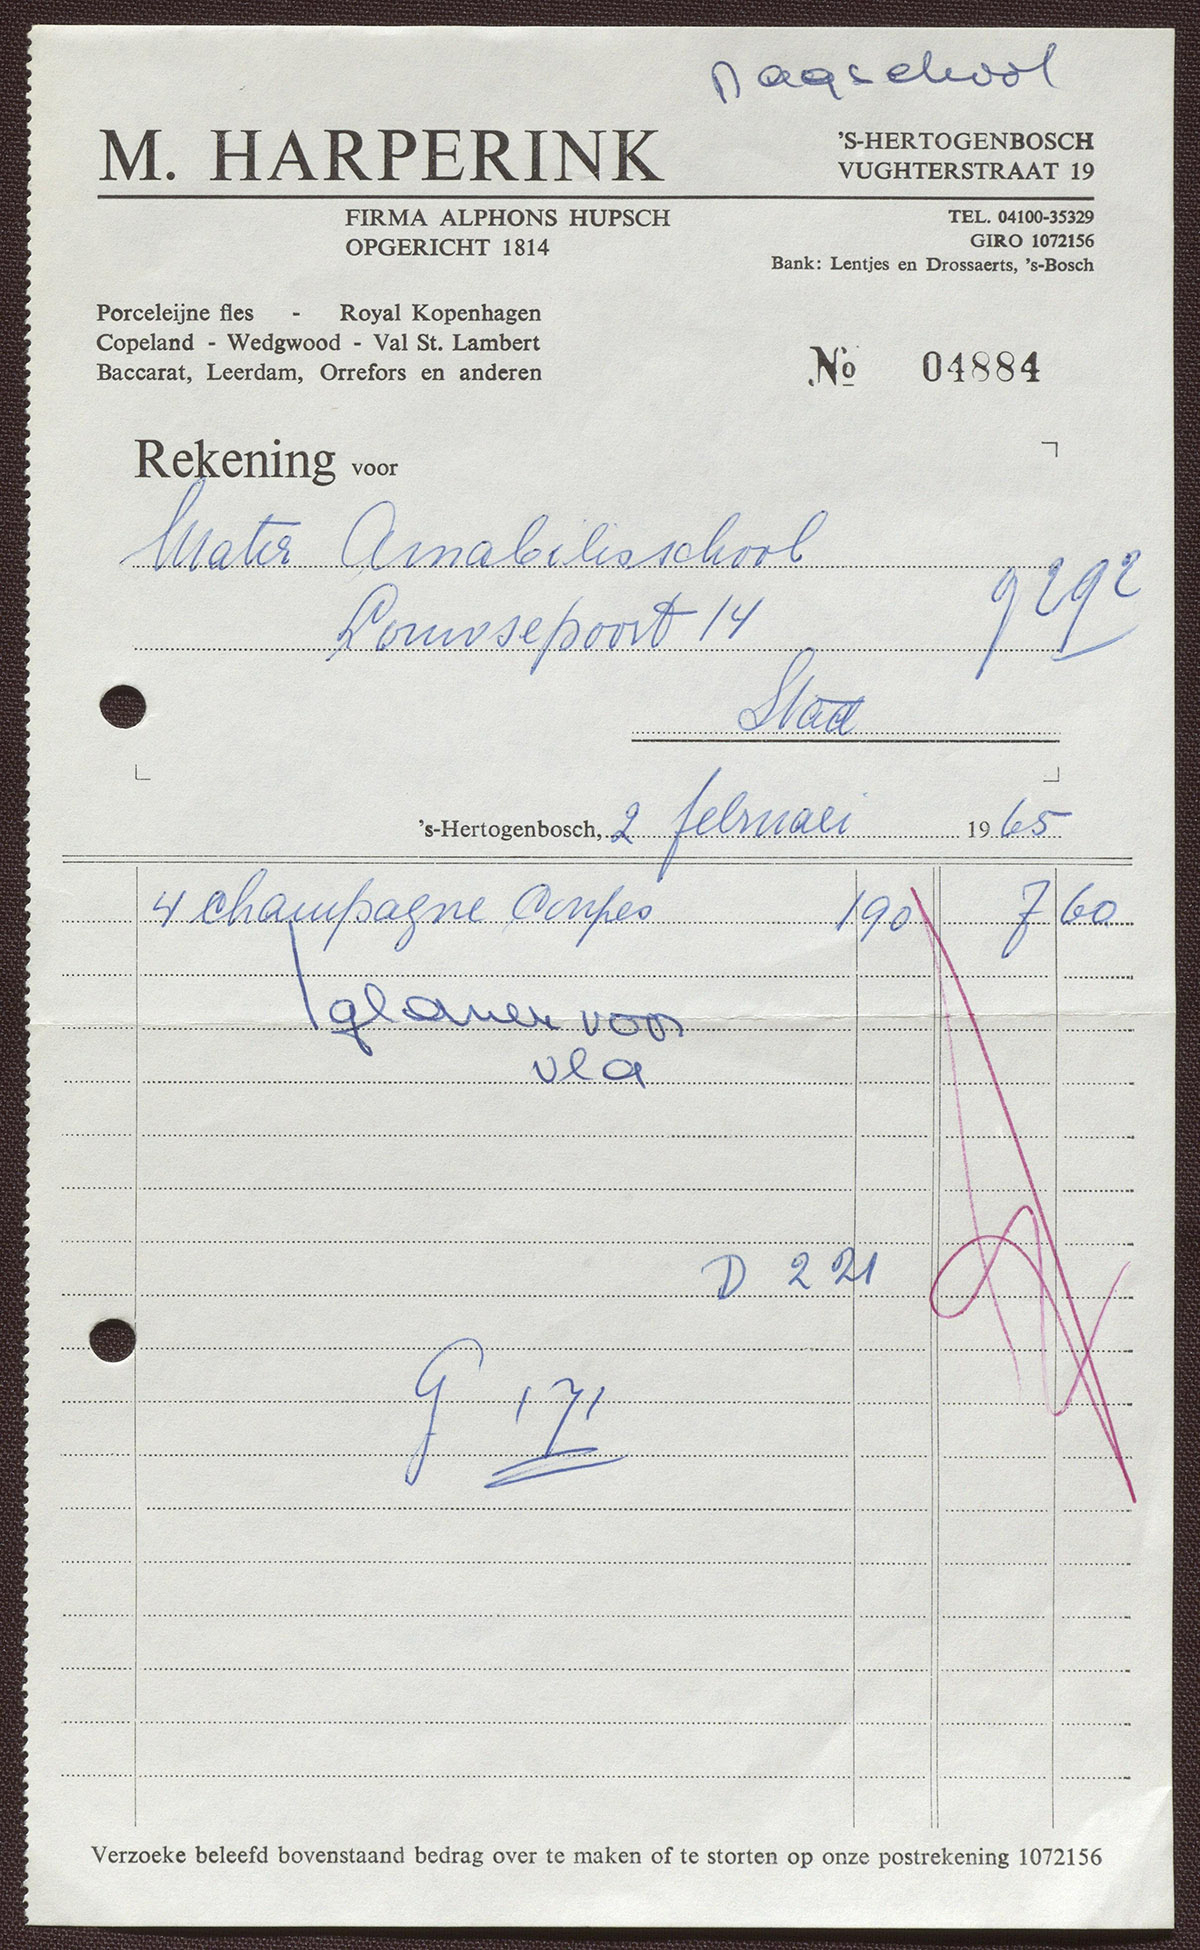 Dagschool
M. HARPERINK
'S-HERTOGENBOSCH
VUGHTERSTRAAT 19
FIRMA ALPHONS HUPSCH
OPGERICHT 1814
TEL. 04100-35329
GIRO 1072156
Bank: Lentjes en Drossaerts, 's-Bosch
Porceleijne fles - Royal Kopenhagen
Copeland - Wedgwood - Val St. Lambert
Baccarat, Leerdam, Orrefors en anderen
No 04884
Rekening voor
Mater Amabilisschool
14
g 292
Stad
's-Hertogenbosch, 2 februari 1965
4 champagne Coupes 190 7 60
glazen voor
vla
D 221
G 171
Verzoeke beleefd bovenstaand bedrag over te maken of te storten op onze postrekening 1072156